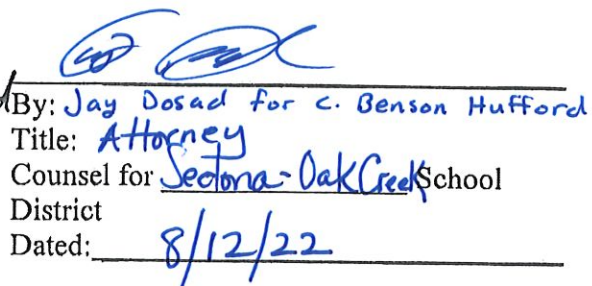 By: Jay Dosad for C. Benson Hufford
Title: Attorney
Counsel for Sedona-Oak Creek School
District
Dated: 8/12/22